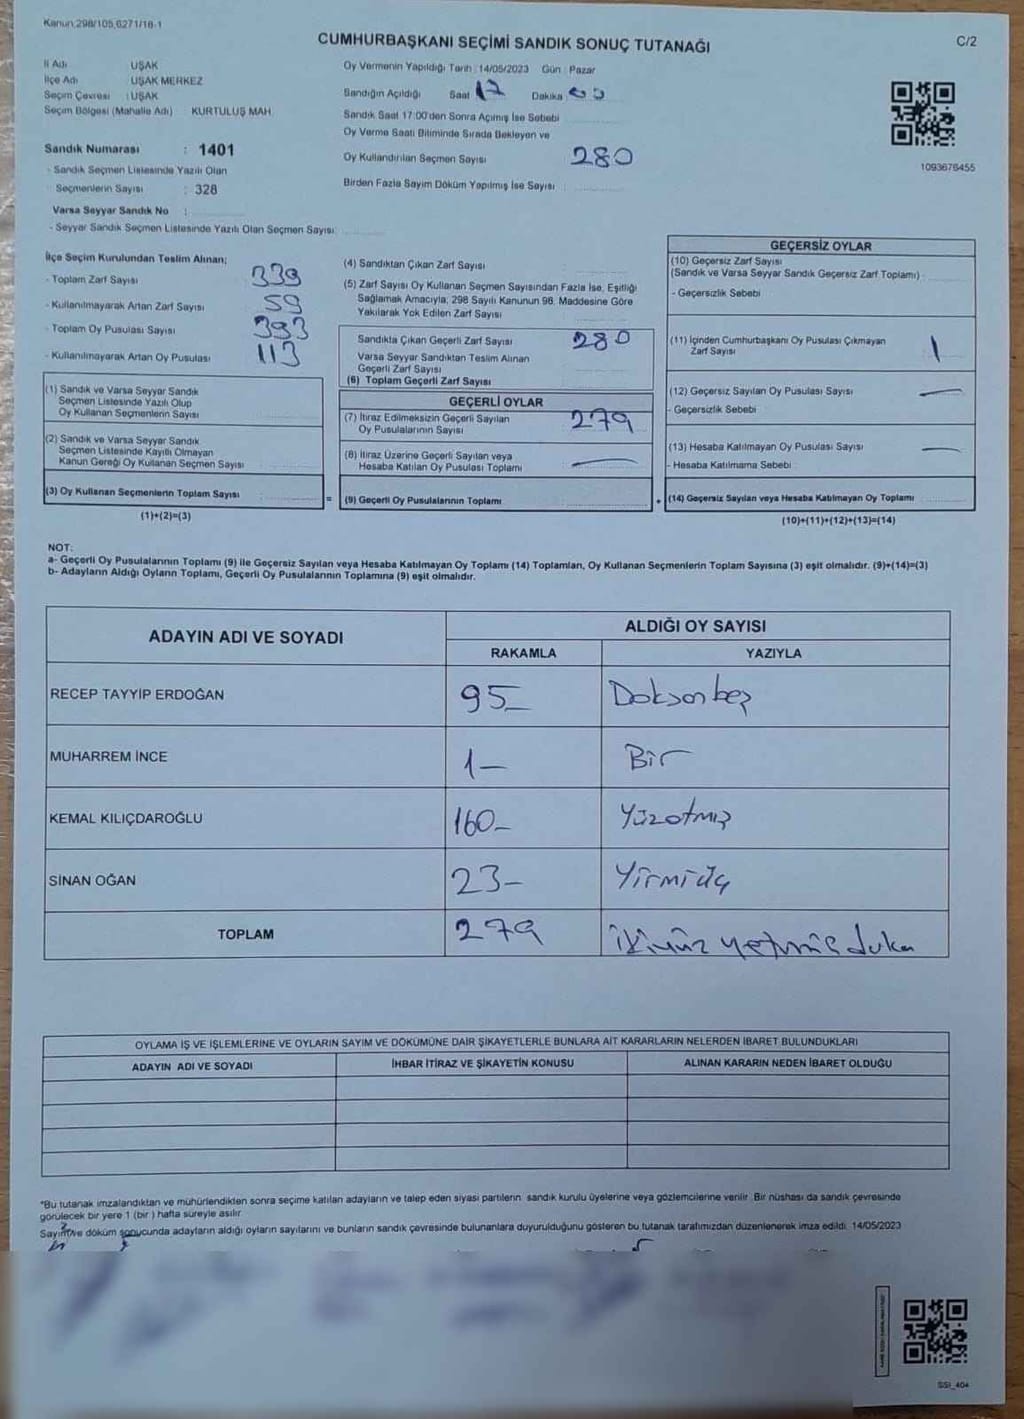 Kanun:298/105,6271/18-1
C/2
CUMHURBAŞKANI SEÇİMİ SANDIK SONUÇ TUTANAĞI
İl Adı : UŞAK
İlçe Adı : UŞAK MERKEZ
Seçim Çevresi : UŞAK
Seçim Bölgesi (Mahalle Adı) KURTULUŞ MAH.
Sandık Numarası : 1401
- Sandık Seçmen Listesinde Yazılı Olan
Seçmenlerin Sayısı : 328
Varsa Seyyar Sandık No :
- Seyyar Sandık Seçmen Listesinde Yazılı Olan Seçmen Sayısı:
Oy Vermenin Yapıldığı Tarih : 14/05/2023 Gün : Pazar
Sandığın Açıldığı Saat 17 Dakika 00
Sandık Saat 17:00'den Sonra Açılmış İse Sebebi
Oy Verme Saati Bitiminde Sırada Bekleyen ve
Oy Kullandırılan Seçmen Sayısı 280
Birden Fazla Sayım Döküm Yapılmış İse Sayısı :
1093676455
İlçe Seçim Kurulundan Teslim Alınan;
- Toplam Zarf Sayısı 339
- Kullanılmayarak Artan Zarf Sayısı 59
- Toplam Oy Pusulası Sayısı 393
- Kullanılmayarak Artan Oy Pusulası 113
(1) Sandık ve Varsa Seyyar Sandık
Seçmen Listesinde Yazılı Olup
Oy Kullanan Seçmenlerin Sayısı
(2) Sandık ve Varsa Seyyar Sandık
Seçmen Listesinde Kayıtlı Olmayan
Kanun Gereği Oy Kullanan Seçmen Sayısı
(3) Oy Kullanan Seçmenlerin Toplam Sayısı =
(1)+(2)=(3)
(4) Sandıktan Çıkan Zarf Sayısı
(5) Zarf Sayısı Oy Kullanan Seçmen Sayısından Fazla İse, Eşitliği
Sağlamak Amacıyla, 298 Sayılı Kanunun 98. Maddesine Göre
Yakılarak Yok Edilen Zarf Sayısı
Sandıkta Çıkan Geçerli Zarf Sayısı 280
Varsa Seyyar Sandıktan Teslim Alınan
Geçerli Zarf Sayısı
(6) Toplam Geçerli Zarf Sayısı
GEÇERLİ OYLAR
(7) İtiraz Edilmeksizin Geçerli Sayılan
Oy Pusulalarının Sayısı 279
(8) İtiraz Üzerine Geçerli Sayılan veya
Hesaba Katılan Oy Pusulası Toplamı —
(9) Geçerli Oy Pusulalarının Toplamı +
GEÇERSİZ OYLAR
(10) Geçersiz Zarf Sayısı
(Sandık ve Varsa Seyyar Sandık Geçersiz Zarf Toplamı)
- Geçersizlik Sebebi
(11) İçinden Cumhurbaşkanı Oy Pusulası Çıkmayan
Zarf Sayısı 1
(12) Geçersiz Sayılan Oy Pusulası Sayısı —
- Geçersizlik Sebebi
(13) Hesaba Katılmayan Oy Pusulası Sayısı —
- Hesaba Katılmama Sebebi
(14) Geçersiz Sayılan veya Hesaba Katılmayan Oy Toplamı
(10)+(11)+(12)+(13)=(14)
NOT:
a- Geçerli Oy Pusulalarının Toplamı (9) ile Geçersiz Sayılan veya Hesaba Katılmayan Oy Toplamı (14) Toplamları, Oy Kullanan Seçmenlerin Toplam Sayısına (3) eşit olmalıdır. (9)+(14)=(3)
b- Adayların Aldığı Oyların Toplamı, Geçerli Oy Pusulalarının Toplamına (9) eşit olmalıdır.
ADAYIN ADI VE SOYADI ALDIĞI OY SAYISI
RAKAMLA YAZIYLA
RECEP TAYYİP ERDOĞAN 95 Doksanbeş
MUHARREM İNCE 1 Bir
KEMAL KILIÇDAROĞLU 160 Yüzatmış
SİNAN OĞAN 23 Yirmiüç
TOPLAM 279 ikiyüz yetmiş
OYLAMA İŞ VE İŞLEMLERİNE VE OYLARIN SAYIM VE DÖKÜMÜNE DAİR ŞİKAYETLERLE BUNLARA AİT KARARLARIN NELERDEN İBARET BULUNDUKLARI
ADAYIN ADI VE SOYADI İHBAR İTİRAZ VE ŞİKAYETİN KONUSU ALINAN KARARIN NEDEN İBARET OLDUĞU
*Bu tutanak imzalandıktan ve mühürlendikten sonra seçime katılan adayların ve talep eden siyasi partilerin sandık kurulu üyelerine veya gözlemcilerine verilir. Bir nüshası da sandık çevresinde
görülecek bir yere 1 (bir) hafta süreyle asılır.
Sayım ve döküm sonucunda adayların aldığı oyların sayılarını ve bunların sandık çevresinde bulunanlara duyurulduğunu gösteren bu tutanak tarafımızdan düzenlenerek imza edildi. 14/05/2023
SSI_404